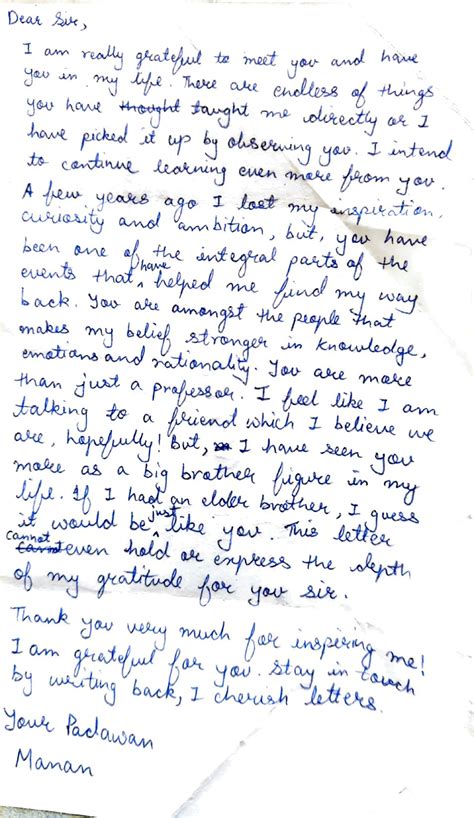 Dear Sir,
I am really grateful to meet you and have
you in my life. There are endless of things
you have thought taught me directly or I
have picked it up by observing you. I intend
to continue learning even more from you.
A few years ago I lost my inspiration,
curiosity and ambition, but, you have
been one of the integral parts of the
events that have helped me find my way
back. You are amongst the people that
makes my belief stronger in knowledge,
emotions and rationality. You are more
than just a professor. I feel like I am
talking to a friend which I believe we
are, hopefully! But, I have seen you
more as a big brother figure in my
life. If I had an elder brother, I guess
it would be just like you. This letter
cannot even hold or express the depth
of my gratitude for you sir.
Thank you very much for inspiring me!
I am grateful for you. Stay in touch
by writing back, I cherish letters.
Your Padawan
Manan